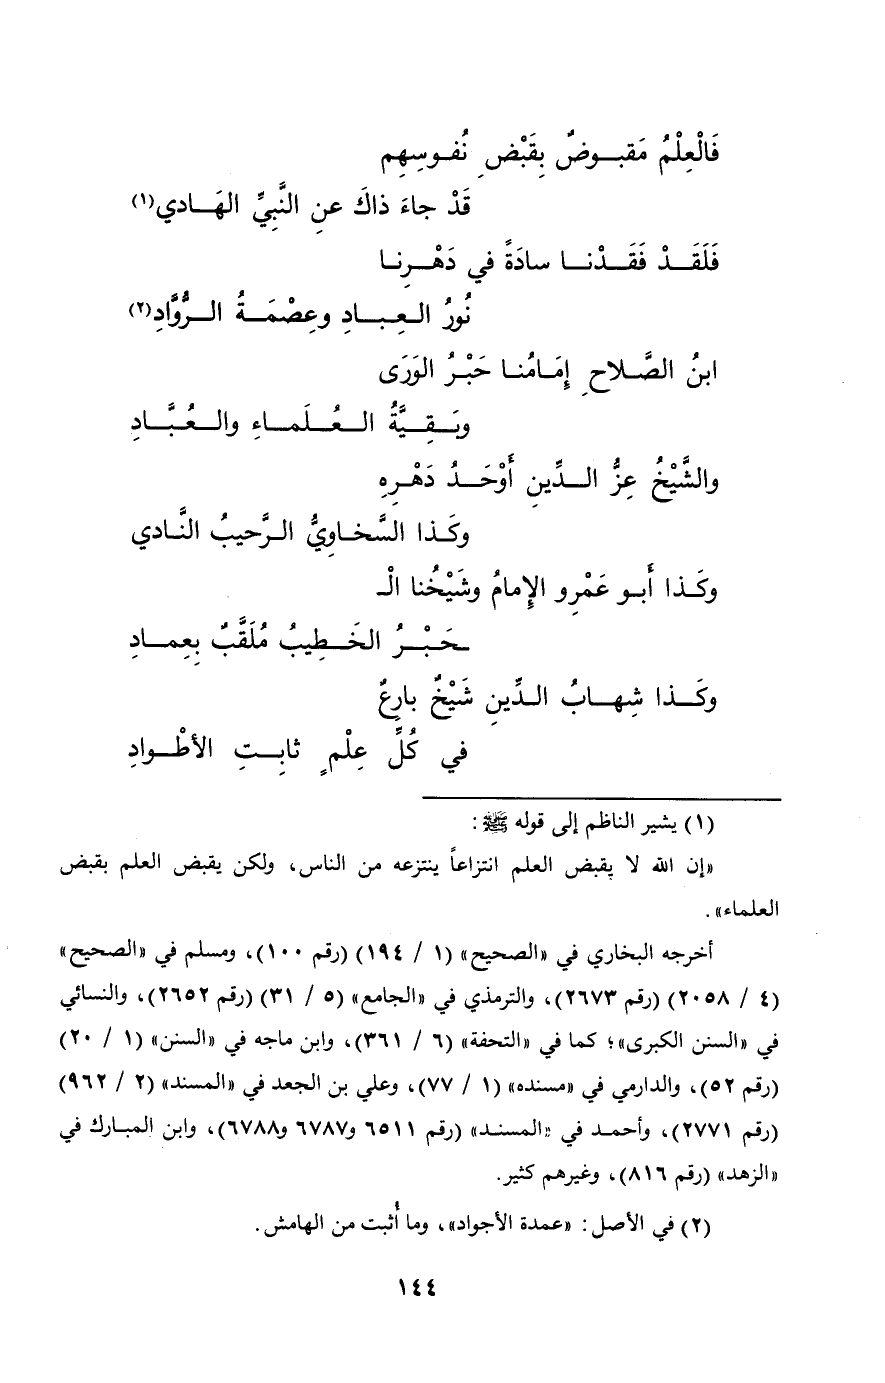 فَالْعِلْمُ مَقبــوضٌ بِقَبْضِ نُفـوسِهِم
قَدْ جاءَ ذاكَ عنِ النَّبِيِّ الهَــادي(١)
فَلَقَــدْ فَقَــدْنــا سادَةً في دَهْــرِنــا
نُورُ العِبــادِ وعِصْمَــةُ الــرُّوَّادِ(٢)
ابنُ الصَّــلاحِ إِمَــامُنــا حَبْــرُ الوَرَى
وبَــقِــيَّةُ الــعُــلَمــاءِ والــعُــبَّــادِ
والشَّيْخُ عِزُّ الــدِّينِ أَوْحَــدُ دَهْــرِهِ
وكَـذا السَّخــاوِيُّ الـرَّحيبُ النَّـادي
وكَـذا أَبـو عَمْرٍو الإِمامُ وشَيْخُنا الْـ
ـحَبْــرُ الخَــطِيبُ مُلَقَّبٌ بِعِمــادِ
وكَــذا شِهــابُ الـدِّينِ شَيْخٌ بارِعٌ
في كُلِّ عِلْمٍ ثابِــتِ الأطْــوادِ
(١) يشير الناظم إلى قوله ﷺ:
«إن الله لا يقبض العلم انتزاعاً ينتزعه من الناس، ولكن يقبض العلم بقبض
العلماء».
أخرجه البخاري في «الصحيح» (١ / ١٩٤) (رقم ١٠٠)، ومسلم في «الصحيح»
(٤ / ٢٠٥٨) (رقم ٢٦٧٣)، والترمذي في «الجامع» (٥ / ٣١) (رقم ٢٦٥٢)، والنسائي
في «السنن الكبرى»؛ كما في «التحفة» (٦ / ٣٦١)، وابن ماجه في «السنن» (١ / ٢٠)
(رقم ٥٢)، والدارمي في «مسنده» (١ / ٧٧)، وعلي بن الجعد في «المسند» (٢ / ٩٦٢)
(رقم ٢٧٧١)، وأحمـد في «المسنـد» (رقم ٦٥١١ و٦٧٨٧ و٦٧٨٨)، وابن المبارك في
«الزهد» (رقم ٨١٦)، وغيرهم كثير.
(٢) في الأصل: «عمدة الأجواد»، وما أُثبت من الهامش.
١٤٤